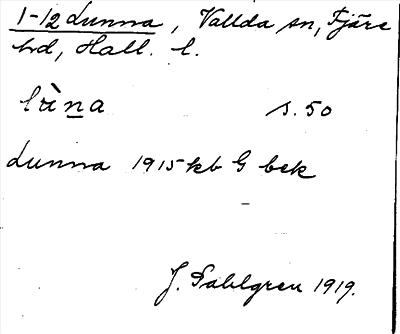 1-12 Lunna, Vallda sn, Fjäre
hd, Hall. l.
lùna s. 50
Lunna 1915 kb G bek
J. Sahlgren 1919.